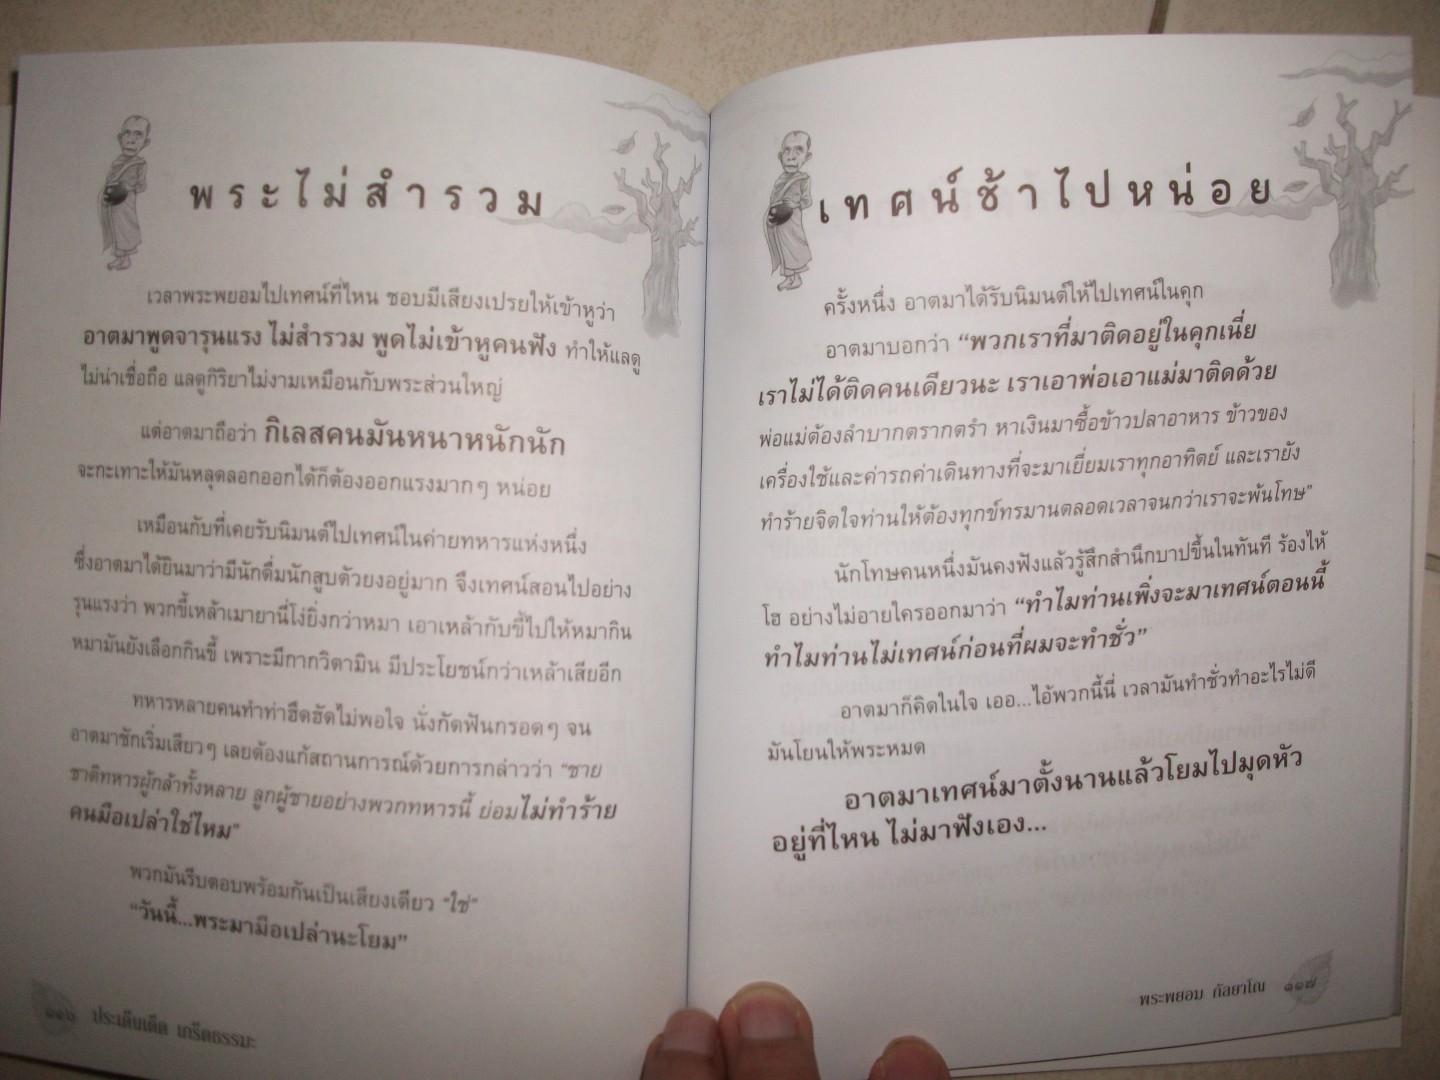 พระไม่สำรวม
เวลาพระพยอมไปเทศน์ที่ไหน ชอบมีเสียงเปรยให้เข้าหูว่า
อาตมาพูดจารุนแรง ไม่สำรวม พูดไม่เข้าหูคนฟัง ทำให้แลดู
ไม่น่าเชื่อถือ แลดูกิริยาไม่งามเหมือนกับพระส่วนใหญ่
แต่อาตมาถือว่า กิเลสคนมันหนาหนักนัก
จะกะเทาะให้มันหลุดลอกออกได้ก็ต้องออกแรงมากๆ หน่อย
เหมือนกับที่เคยรับนิมนต์ไปเทศน์ในค่ายทหารแห่งหนึ่ง
ซึ่งอาตมาได้ยินมาว่ามีนักดื่มนักสูบตัวยงอยู่มาก จึงเทศน์สอนไปอย่าง
รุนแรงว่า พวกขี้เหล้าเมายานี่โง่ยิ่งกว่าหมา เอาเหล้ากับขี้ไปให้หมากิน
หมามันยังเลือกกินขี้ เพราะมีกากวิตามิน มีประโยชน์กว่าเหล้าเสียอีก
ทหารหลายคนทำท่าฮึดฮัดไม่พอใจ นั่งกัดฟันกรอดๆ จน
อาตมาชักเริ่มเสียวๆ เลยต้องแก้สถานการณ์ด้วยการกล่าวว่า “ชาย
ชาติทหารผู้กล้าทั้งหลาย ลูกผู้ชายอย่างพวกทหารนี้ ย่อมไม่ทำร้าย
คนมือเปล่าใช่ไหม”
พวกมันรีบตอบพร้อมกันเป็นเสียงเดียว “ใช่”
“วันนี้...พระมามือเปล่านะโยม”
๑๑๖ ประเด็นเด็ด เกร็ดธรรมะ
เทศน์ช้าไปหน่อย
ครั้งหนึ่ง อาตมาได้รับนิมนต์ให้ไปเทศน์ในคุก
อาตมาบอกว่า “พวกเราที่มาติดอยู่ในคุกเนี่ย
เราไม่ได้ติดคนเดียวนะ เราเอาพ่อเอาแม่มาติดด้วย
พ่อแม่ต้องลำบากตรากตรำ หาเงินมาซื้อข้าวปลาอาหาร ข้าวของ
เครื่องใช้และค่ารถค่าเดินทางที่จะมาเยี่ยมเราทุกอาทิตย์ และเรายัง
ทำร้ายจิตใจท่านให้ต้องทุกข์ทรมานตลอดเวลาจนกว่าเราจะพ้นโทษ”
นักโทษคนหนึ่งมันคงฟังแล้วรู้สึกสำนึกบาปขึ้นในทันที ร้องไห้
โฮ อย่างไม่อายใครออกมาว่า “ทำไมท่านเพิ่งจะมาเทศน์ตอนนี้
ทำไมท่านไม่เทศน์ก่อนที่ผมจะทำชั่ว”
อาตมาก็คิดในใจ เออ...ไอ้พวกนี้นี่ เวลามันทำชั่วทำอะไรไม่ดี
มันโยนให้พระหมด
อาตมาเทศน์มาตั้งนานแล้วโยมไปมุดหัว
อยู่ที่ไหน ไม่มาฟังเอง...
พระพยอม กัลยาโณ ๑๑๗